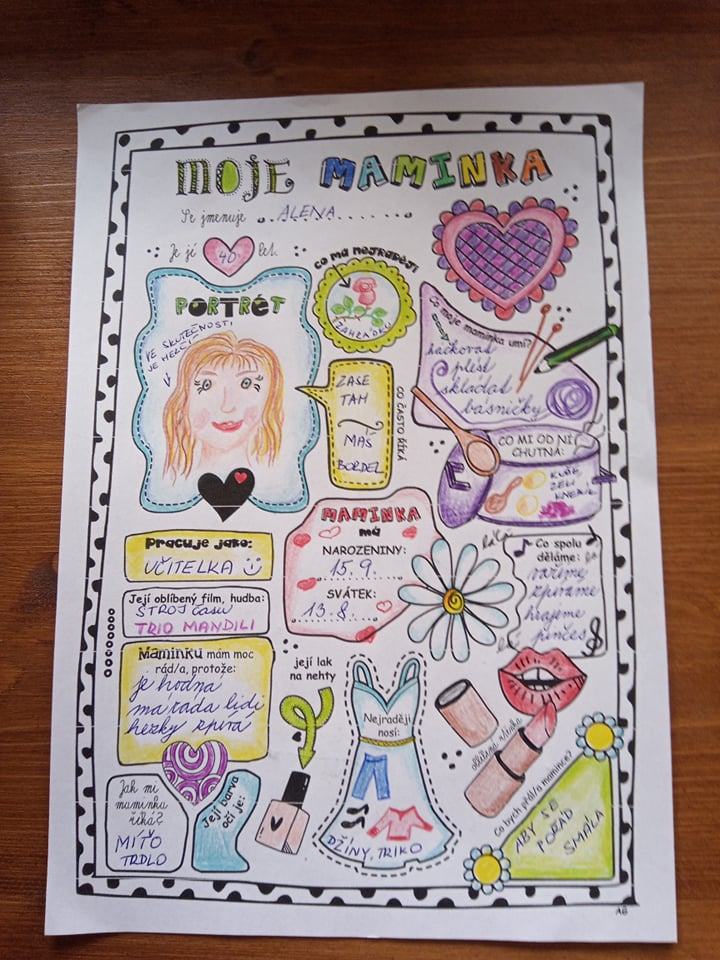 MOJE MAMINKA
Se jmenuje ALENA
Je jí 40 let.
co má nejraději
ZAHRÁDKU
PORTRÉT
VE SKUTEČNOSTI
JE HEZČÍ
Co moje maminka umí?
háčkovat
plést
skládat
básničky
ZASE
TAM
MÁŠ
BORDEL
CO ČASTO ŘÍKÁ
CO MI OD NÍ
CHUTNÁ:
KUŘE
ZELÍ
KNEDLÍK
MAMINKA
má
NAROZENINY:
15.9.
SVÁTEK:
13.8.
Pracuje jako:
UČITELKA
Její oblíbený film, hudba:
STROJ ČASU
TRIO MANDILI
Co spolu
děláme:
vaříme
zpíváme
hrajeme
Maminku mám moc
rád/a, protože:
je hodná
má ráda lidi
hezky zpívá
její lak
na nehty
Nejraději
nosí:
DŽÍNY, TRIKO
oblíbená rtěnka
Jak mi
maminka
říká?
MÍŤO
TRDLO
Její barva
očí je:
Co bych přál/a mamince?
ABY SE
POŘÁD
SMÁLA
AB